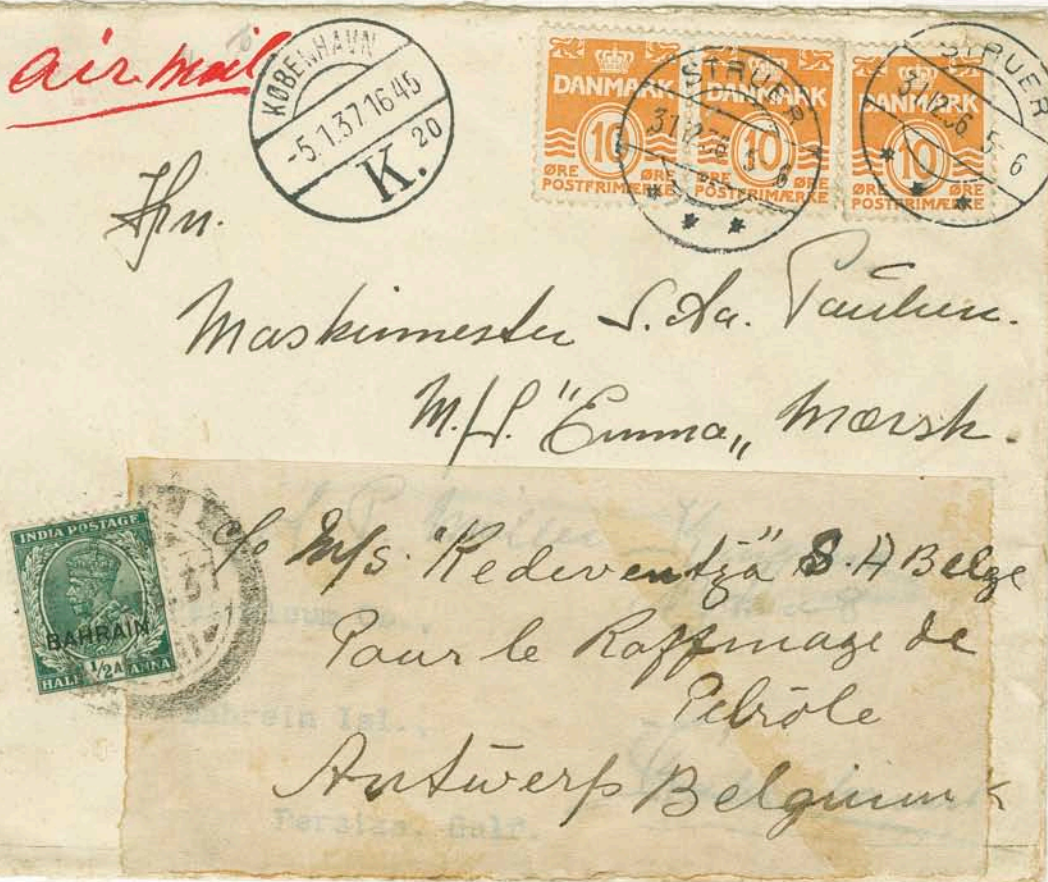 air mail
KØBENHAVN
-5.1.37.1645
K. 20
DANMARK
10
ØRE ØRE
POSTFRIMÆRKE
DANMARK
10
ØRE ØRE
POSTFRIMÆRKE
DANMARK
10
ØRE ØRE
POSTFRIMÆRKE
STRUER
31.12.36 5-6
STRUER
31.12.36 5-6
Hrn.
Maskinmester S. Aa. Paulsen.
M/S. "Emma" Mærsk.
INDIA POSTAGE
BAHRAIN
HALF 1/2A ANNA
c/o M/s. "Redeventza" S.A Belge
Pour le Raffinage de
Petrôle
Antwerp Belgium
Bahrein Isl.,
Persian Gulf.